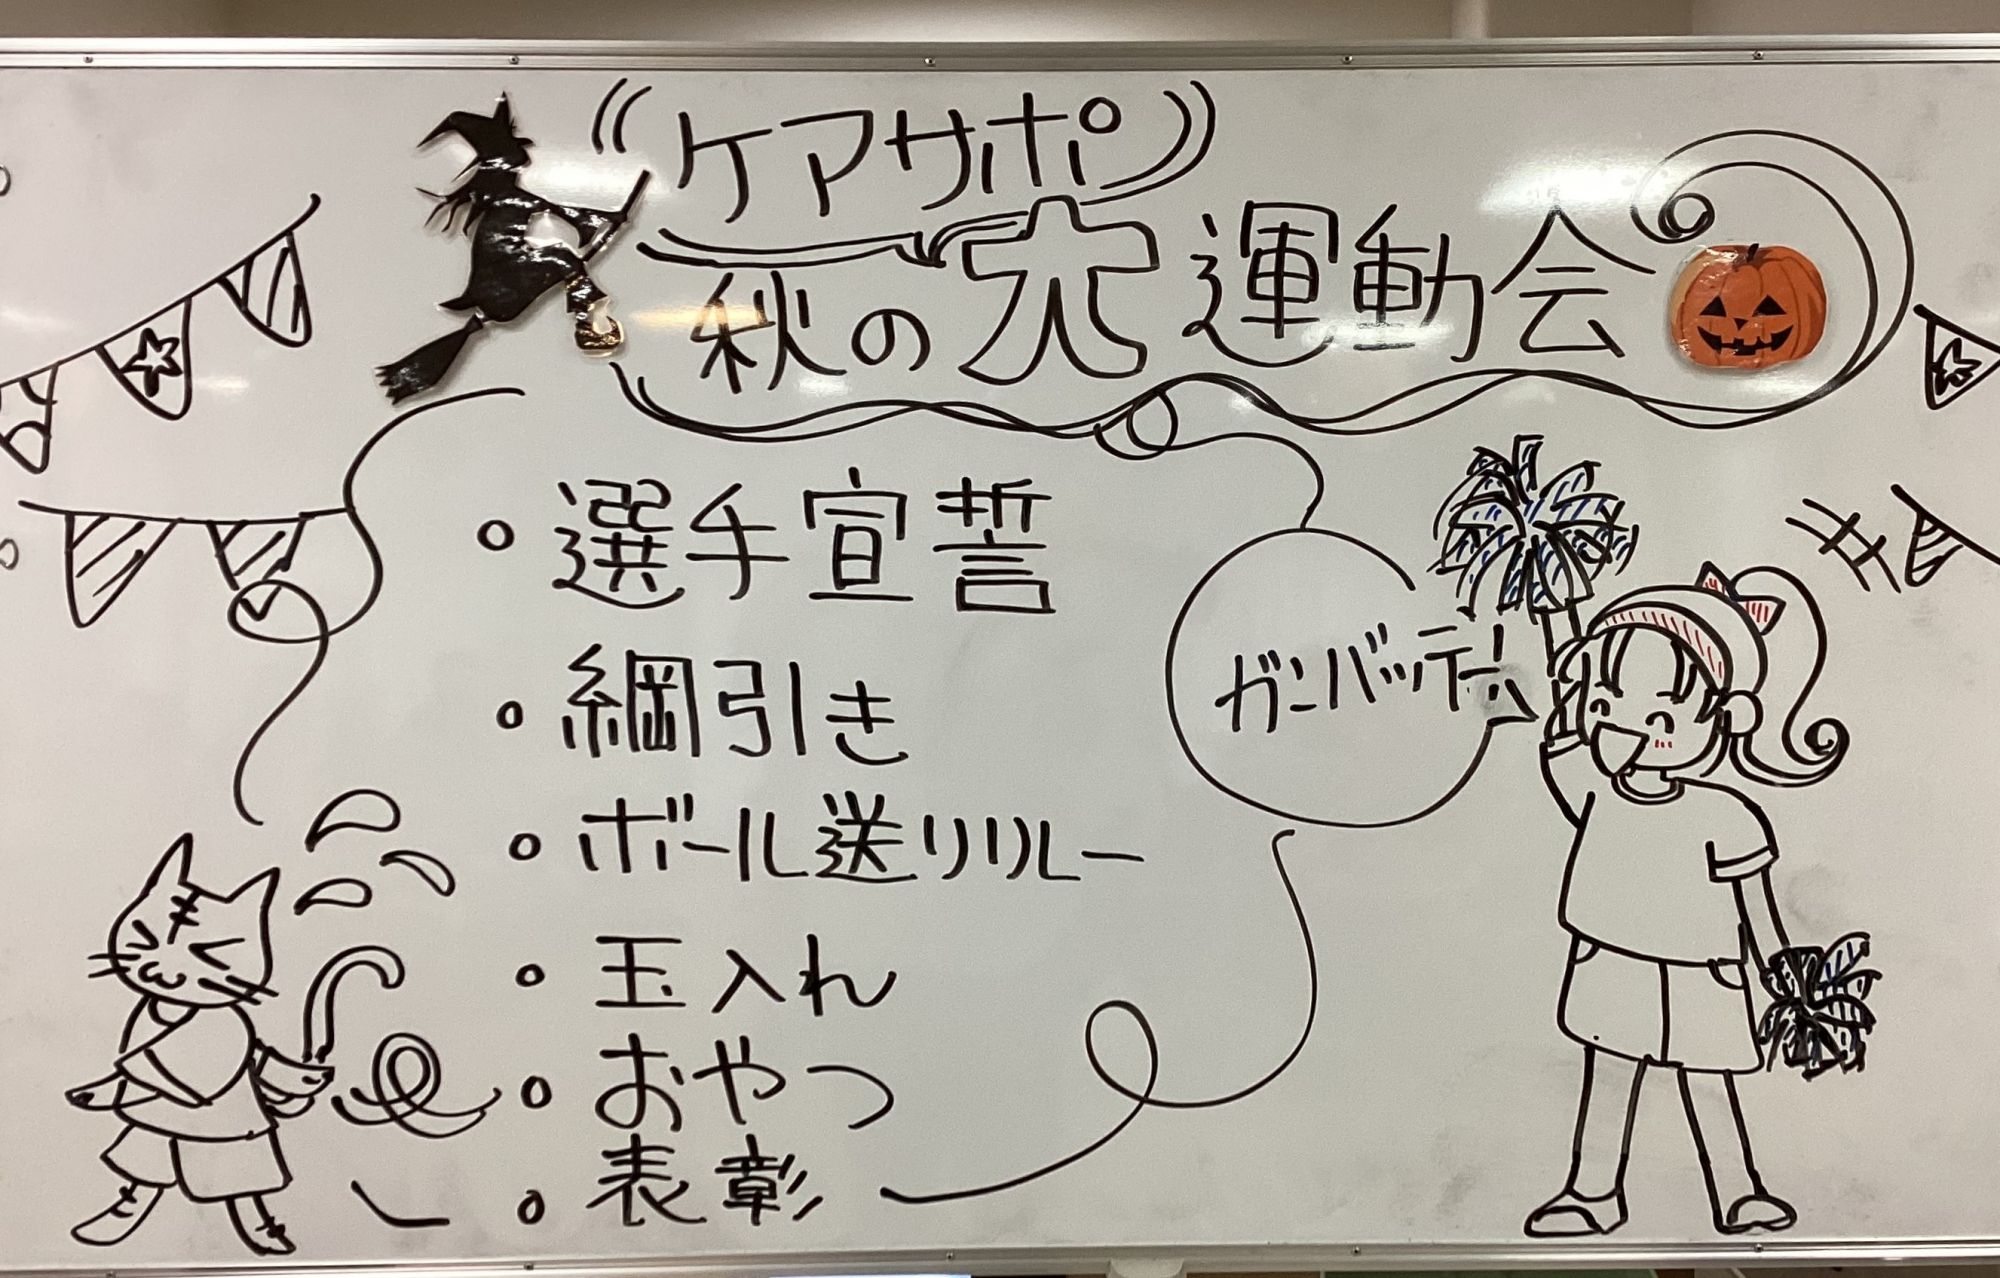 ケアサポ
秋の大運動会
。選手宣誓
。綱引き
。ボール送りリレー
。玉入れ
。おやつ
。表彰
ガンバッテー!